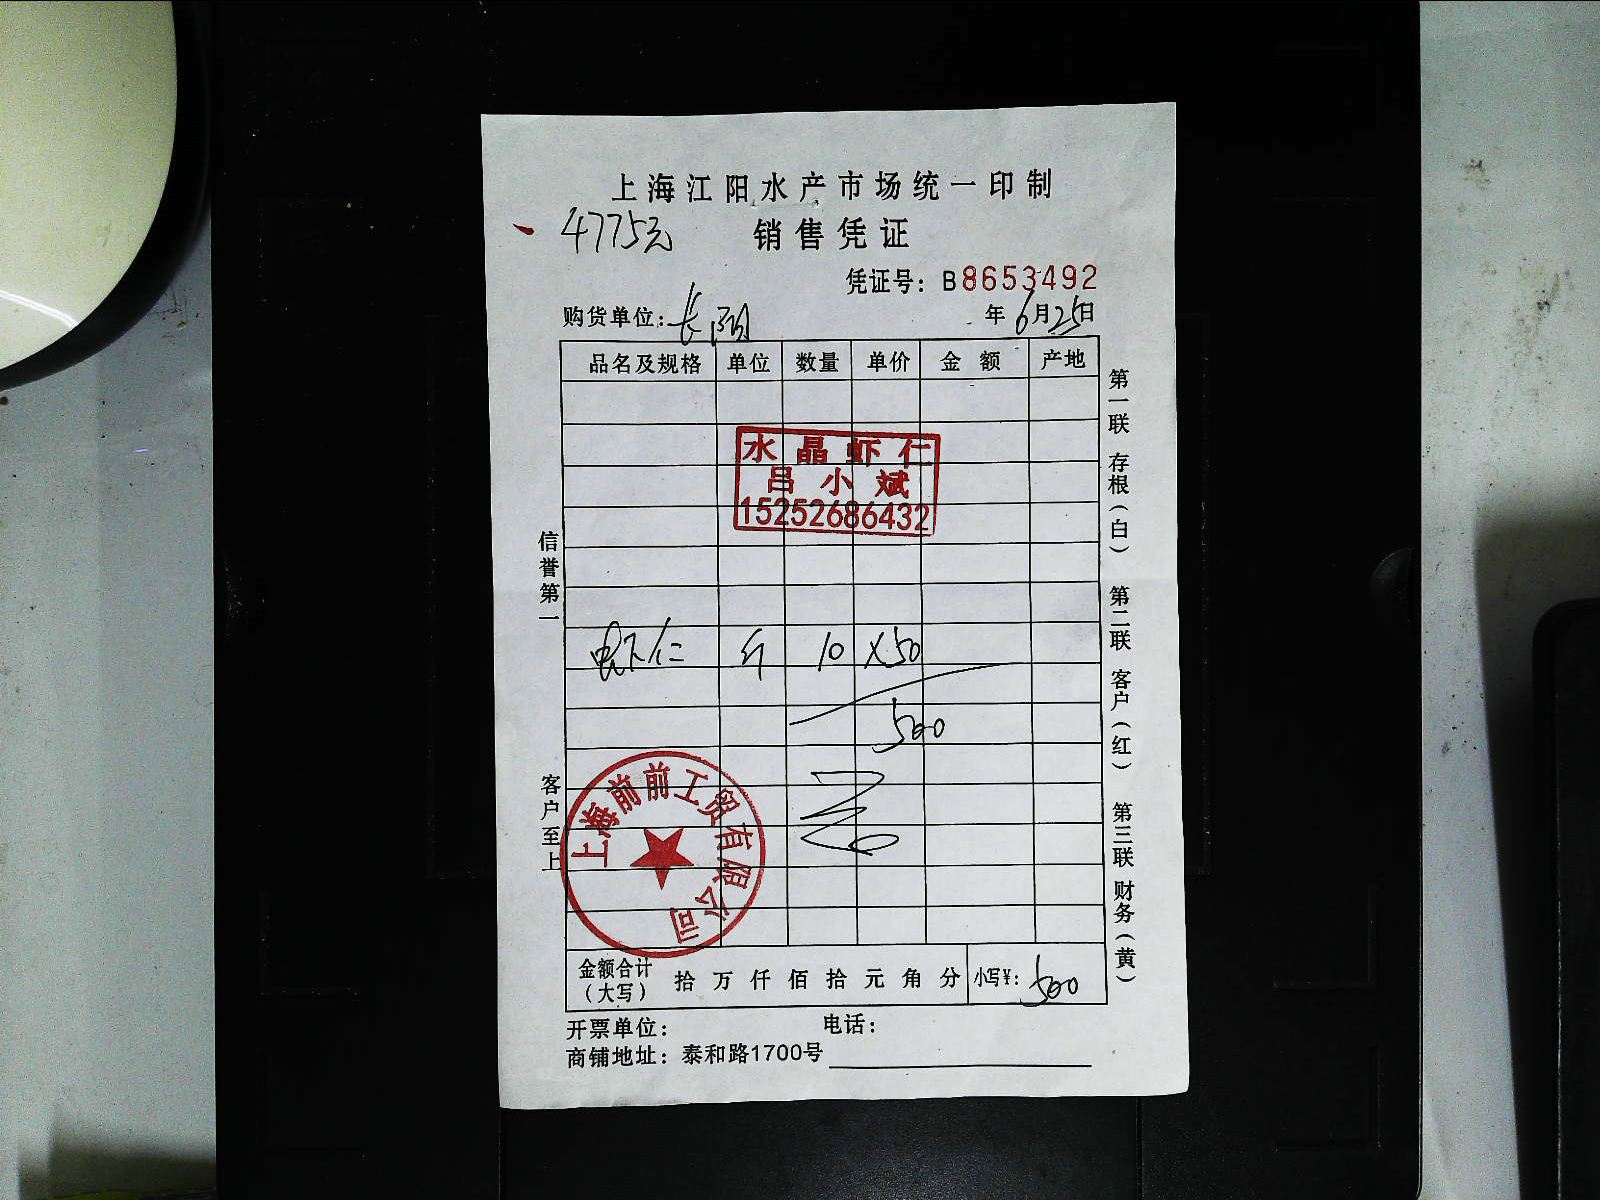 上海江阳水产市场统一印制
4775元
销售凭证
凭证号：B8653492
购货单位：长阳
年6月25日
品名及规格 单位 数量 单价 金额 产地
水晶虾仁
吕小斌
15252686432
虾仁 斤 10 X50
500
上海前前工贸有限公司
金额合计（大写） 拾万仟佰拾元角分 小写¥：500
开票单位： 电话：
商铺地址：泰和路1700号
信誉第一 客户至上
第一联 存根（白） 第二联 客户（红） 第三联 财务（黄）